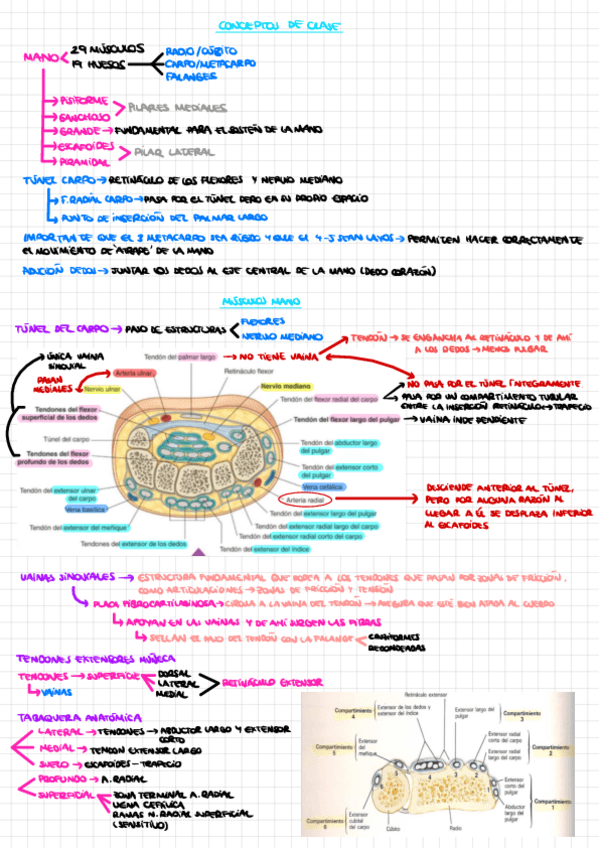 CONCEPTOS DE CLASE
MANO
29 MÚSCULOS
19 HUESOS
RADIO/CÚBITO
CARPO/METACARPO
FALANGES
PISIFORME
GANCHOSO
PILARES MEDIALES
GRANDE → FUNDAMENTAL PARA EL SOSTÉN DE LA MANO
ESCAFOIDES
PIRAMIDAL
PILAR LATERAL
TÚNEL CARPO → RETINÁCULO DE LOS FLEXORES Y NERVIO MEDIANO
F. RADIAL CARPO → PASA POR EL TÚNEL PERO EN SU PROPIO ESPACIO
PUNTO DE INSERCIÓN DEL PALMAR LARGO
IMPORTANTE QUE EL 3 METACARPO SEA RÍGIDO Y QUE EL 4-5 SEAN LAXOS → PERMITEN HACER CORRECTAMENTE
EL MOVIMIENTO DE "ATRAPE" DE LA MANO
ADUCIÓN DEDOS → JUNTAR LOS DEDOS AL EJE CENTRAL DE LA MANO (DEDO CORAZÓN)
MÚSCULOS MANO
TÚNEL DEL CARPO → PASO DE ESTRUCTURAS
FLEXORES
NERVIO MEDIANO
TENDÓN → SE ENGANCHA AL RETINÁCULO Y DE AHÍ
A LOS DEDOS → MENOS PULGAR
ÚNICA VAINA
SINOVIAL
PASAN
MEDIALES
Tendón del palmar largo
→ NO TIENE VAINA
Arteria ulnar
Retináculo flexor
Nervio ulnar
Nervio mediano
Tendón del flexor radial del carpo
NO PASA POR EL TÚNEL ÍNTEGRAMENTE
PASA POR UN COMPARTIMENTO TUBULAR
ENTRE LA INSERCIÓN RETINÁCULO → TRAPECIO
Tendones del flexor
superficial de los dedos
Tendón del flexor largo del pulgar
→ VAINA INDEPENDIENTE
Túnel del carpo
Tendón del abductor largo
del pulgar
Tendones del flexor
profundo de los dedos
Tendón del extensor corto
del pulgar
Tendón del extensor ulnar
del carpo
Vena cefálica
Arteria radial
DESCIENDE ANTERIOR AL TÚNEL,
PERO POR ALGUNA RAZÓN AL
LLEGAR A ÉL SE DESPLAZA INFERIOR
AL ESCAFOIDES
Vena basílica
Tendón del extensor largo del pulgar
Tendón del extensor del meñique
Tendón del extensor radial largo del carpo
Tendón del extensor radial corto del carpo
Tendones del extensor de los dedos
Tendón del extensor del índice
VAINAS SINOVIALES → ESTRUCTURA FUNDAMENTAL QUE RODEA A LOS TENDONES QUE PASAN POR ZONAS DE FRICCIÓN,
COMO ARTICULACIONES → ZONAS DE FRICCIÓN Y TENSIÓN
PLACA FIBROCARTILAGINOSA → CIRCULA A LA VAINA DEL TENDÓN → ASEGURA QUE ESTÉ BIEN ATADA AL CUERPO
APOYAN EN LAS VAINAS Y DE AHÍ SURGEN LAS FIBRAS
SELLAN EL PASO DEL TENDÓN CON LA FALANGE
CRUCIFORMES
REDONDEADAS
TENDONES EXTENSORES MUÑECA
TENDONES → SUPERFICIE
DORSAL
LATERAL
MEDIAL
RETINÁCULO EXTENSOR
VAINAS
TABAQUERA ANATÓMICA
LATERAL → TENDONES → ABDUCTOR LARGO Y EXTENSOR
CORTO
MEDIAL → TENDÓN EXTENSOR LARGO
SUELO → ESCAFOIDES-TRAPECIO
PROFUNDO → A. RADIAL
SUPERFICIAL
ZONA TERMINAL A. RADIAL
VENA CEFÁLICA
RAMAS N. RADIAL SUPERFICIAL
(SENSITIVO)
Retináculo extensor
Compartimiento
4
Extensor de los dedos y
extensor del índice
Extensor largo del
pulgar
Compartimiento
3
Compartimiento
5
Extensor
del
meñique
Extensor radial
corto del carpo
Extensor radial
largo del carpo
Compartimiento
2
Extensor
corto del
pulgar
Abductor
largo del
pulgar
Compartimiento
1
Compartimiento
6
Extensor
cubital
del carpo
Cúbito
Radio